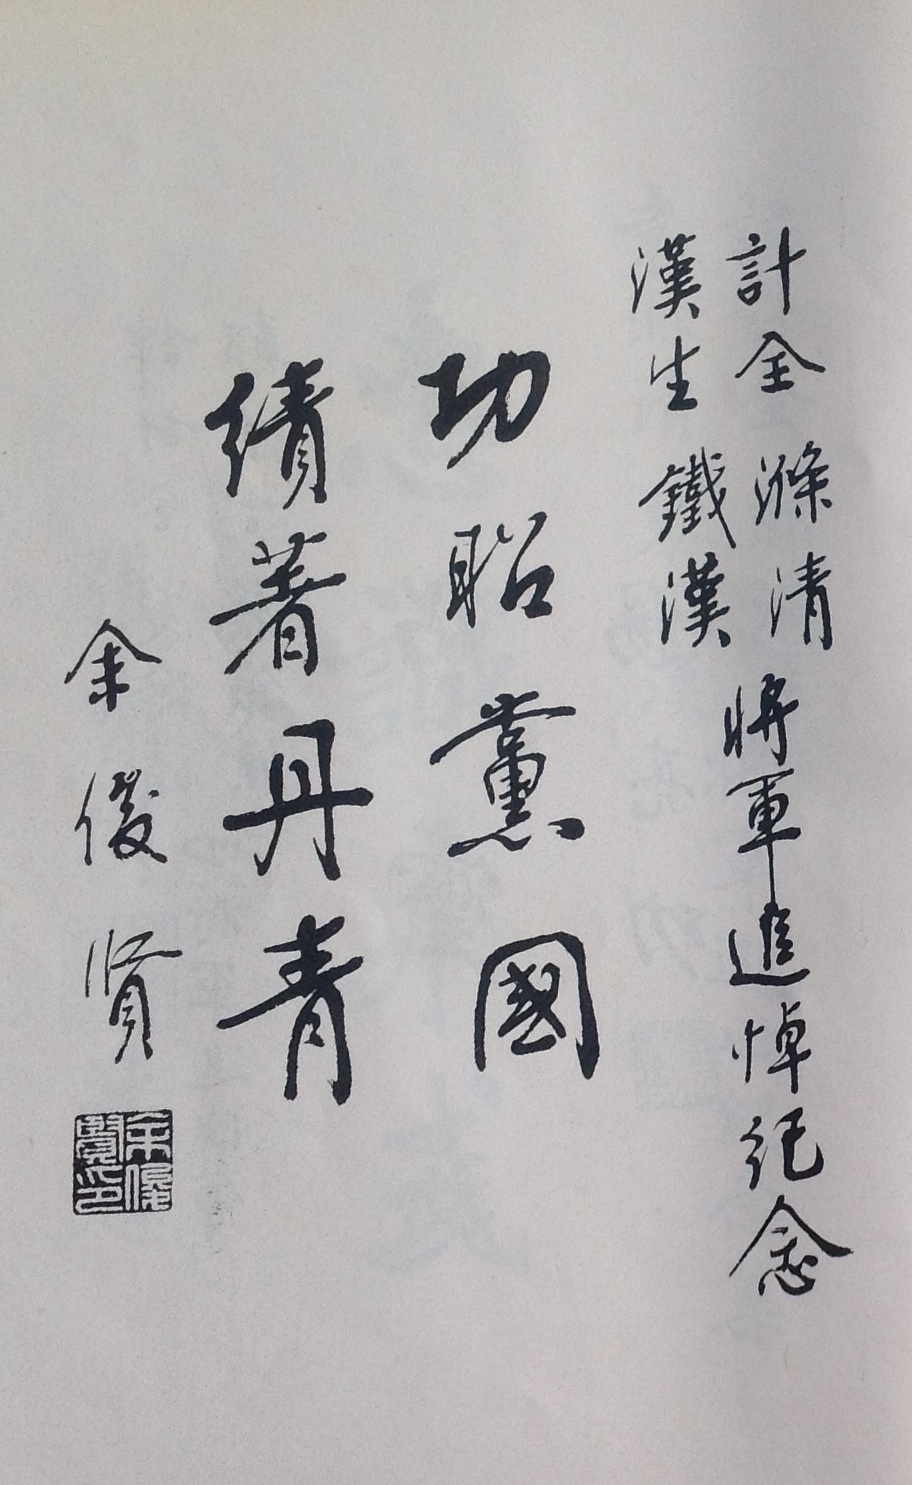 計全 滌清 將軍追悼紀念
漢生 鐵漢
功昭黨國
績著丹青
余俊賢
余俊賢印